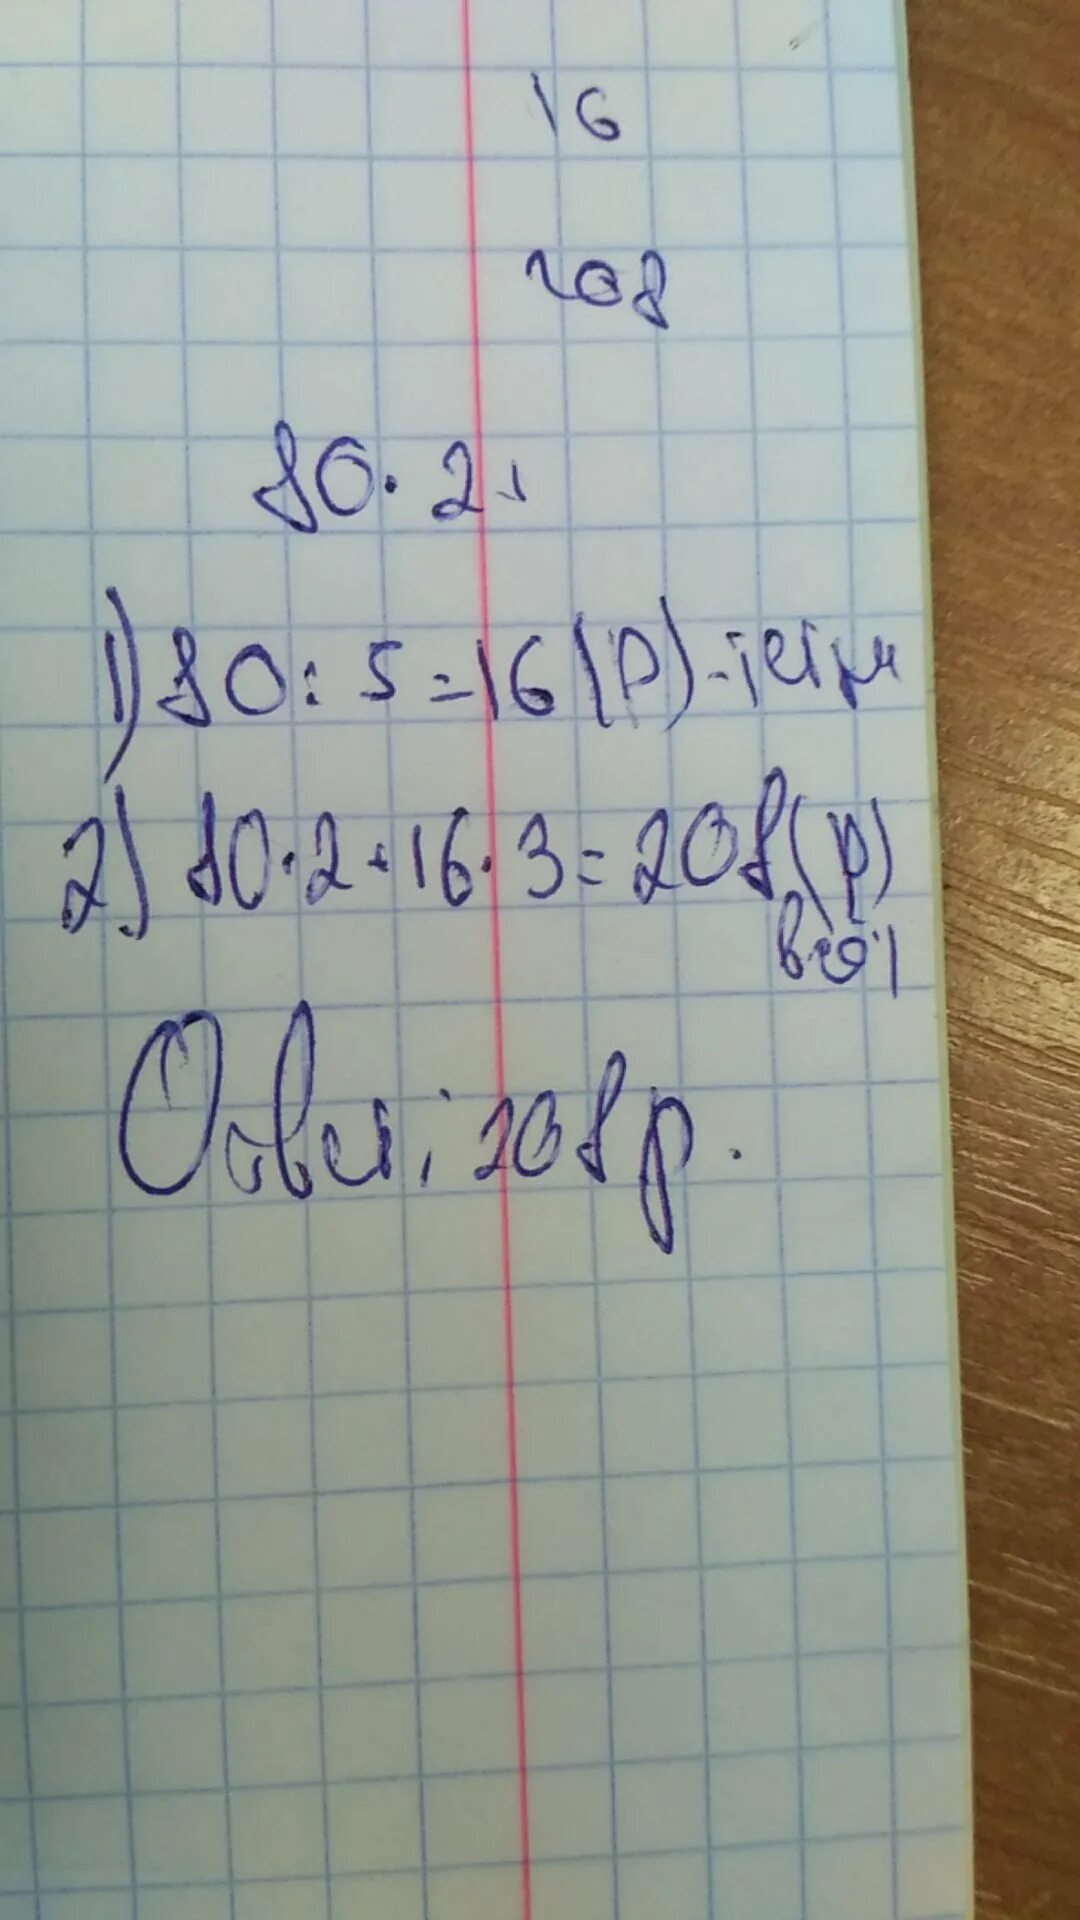 16
208
80·2+
1) 80:5=16(р)-
2) 80·2+16·3=208(р)
Ответ: 208р.